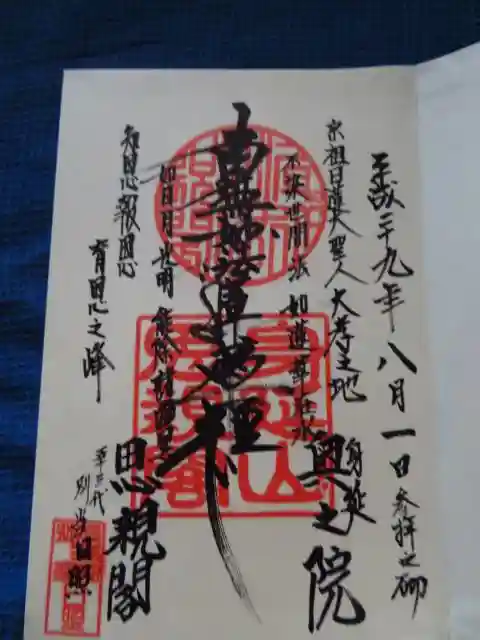 平成二十九年八月一日参拝之砌
宗祖日蓮大聖人大孝之地
身延
奥之院
不染世間法 如蓮華在水
南無妙法蓮華経
如日月光明 能除諸幽冥
知恩報恩
育恩之峰
思親閣
別当日照
身延山
思親閣